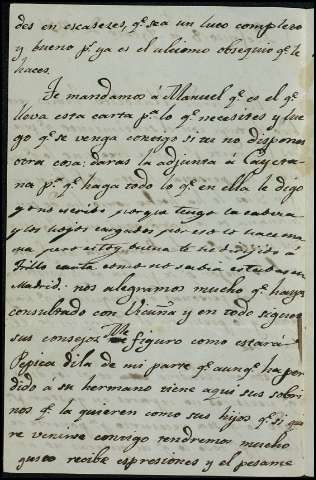 des en escaseses, qe sea un luto completo
y bueno pr ya es el ultimo obsequio qe le
haces.
Te mandamos á Manuel qe es el qe
lleva esta carta pa lo qe necesites y lue
go qe se venga contigo si tu no dispones
otra cosa; daras la adjunta á Cayeta
na pa qe haga todo lo qe en ella le digo
y no escribo porque tengo la cabeza
y los ojos cargados por eso lo hace ma
na pero estoy buena te he dirijido á
Trillo carta como no sabia estabas en
Madrid. nos alegramos mucho qe hayas
consultado con Vicuña y en todo sigue
sus consejos. Me figuro como estará
Pepica dila de mi parte qe aunqe ha per
dido á su hermano tiene aqui sus sobri
nos qe la quieren como sus hijos qe si quie
re venirse contigo tendremos mucho
gusto recibe espresiones y el pesame